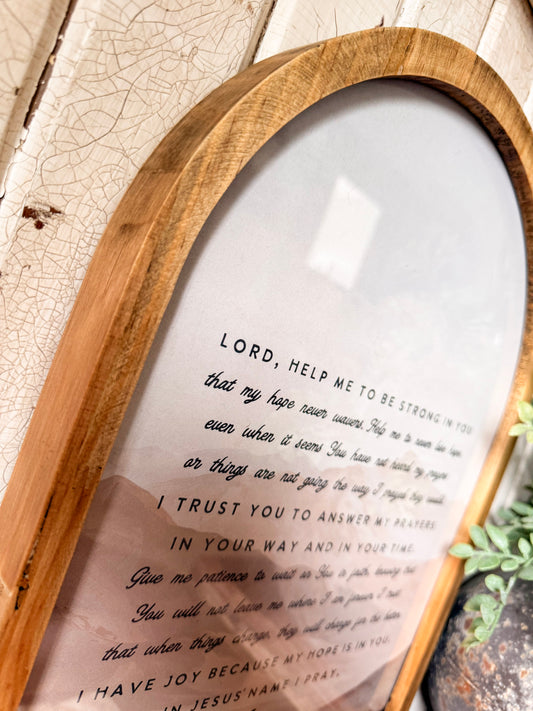 LORD, HELP ME TO BE STRONG IN YOU
that my hope never wavers. Help me to never lose hope,
even when it seems You have not heard my prayers
or things are not going the way I prayed they would.
I TRUST YOU TO ANSWER MY PRAYERS
IN YOUR WAY AND IN YOUR TIME.
Give me patience to wait on You in faith, knowing that
You will not leave me where I am forever. I trust
that when things change, they will change for the better.
I HAVE JOY BECAUSE MY HOPE IS IN YOU.
IN JESUS' NAME I PRAY,